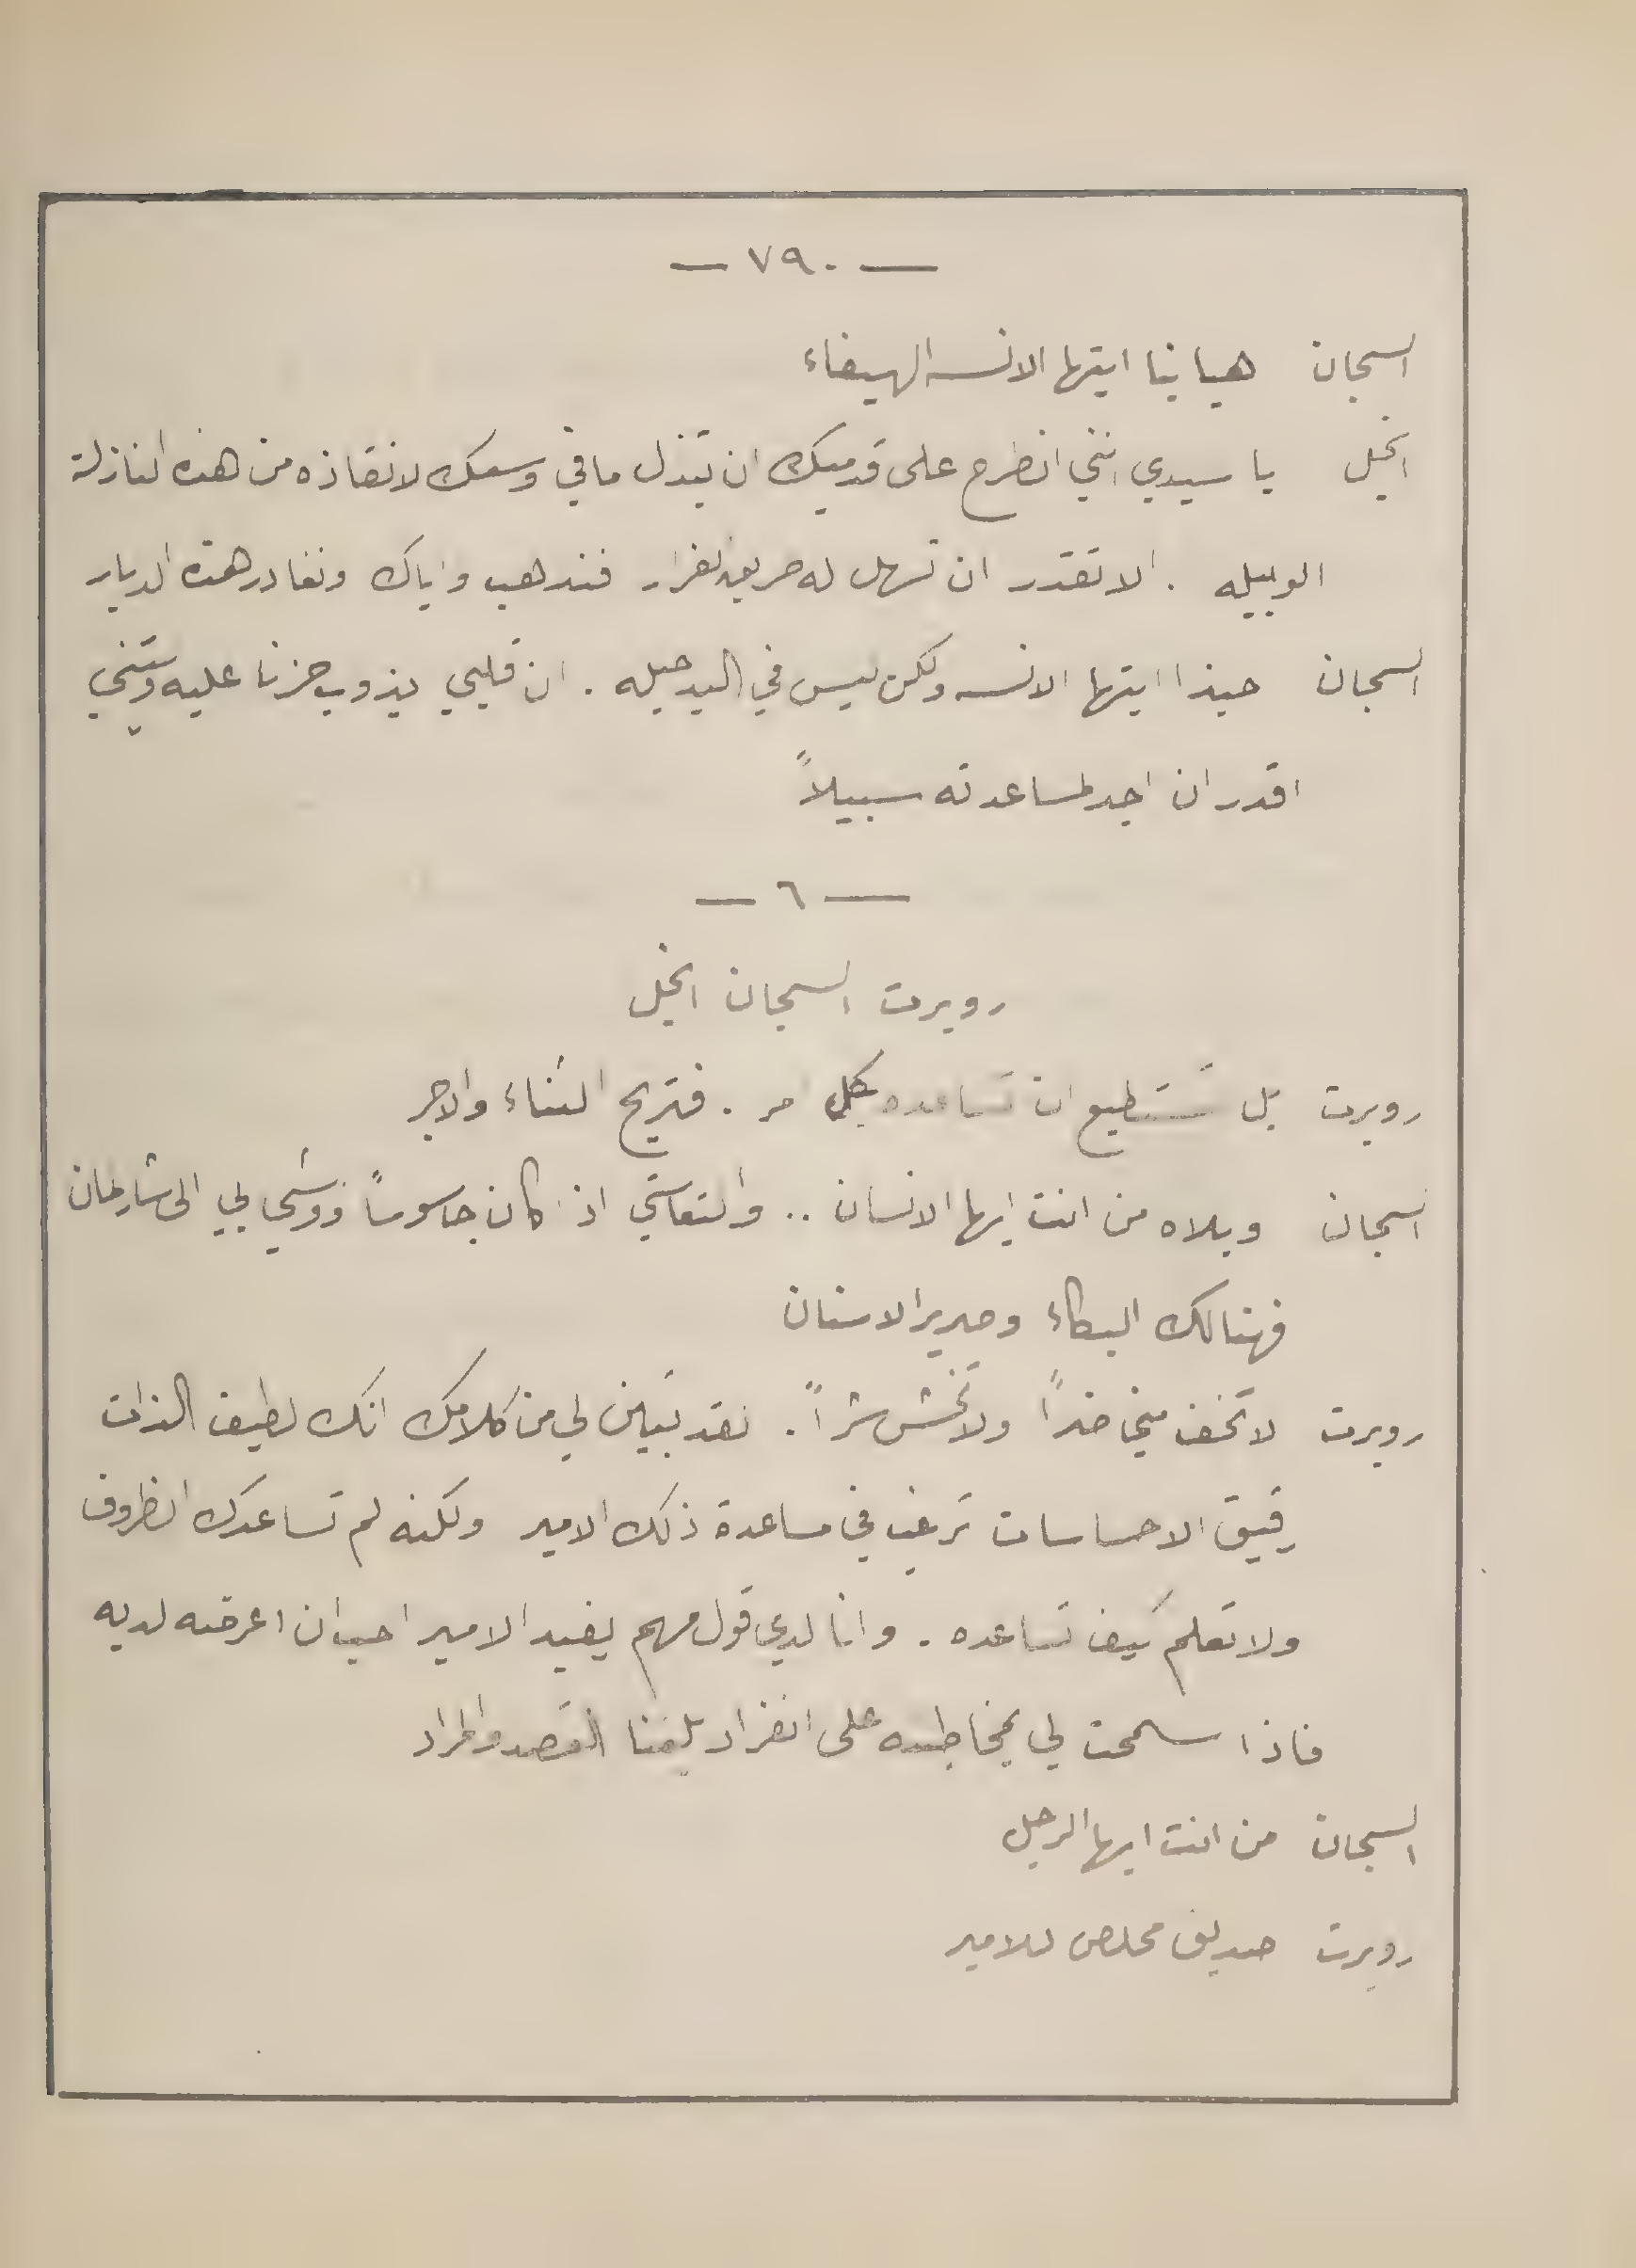 — ٧٩٠ —
السجان هيا بنا ايتها الانسه الهيفاء
انجيل يا سيدي انني انطرح على قدميك ان تبذل ما في وسعك لانقاذه من هذه النازلة
الوبيله . الا تقدر ان تسهل له طريق الفرار فنذهب واياك ونغادر هذه الديار
السجان حبذا ايتها الانسه ولكن ليس في اليد حيله . ان قلبي يذوب حزنا عليه وليتني
اقدر ان اجد لمساعدته سبيلاً
— ٦ —
روبرت السجان انجيل
روبرت بل تستطيع ان تساعده بكل امر . فتربح الثناء والاجر
السجان ويلاه من انت ايها الانسان .. والتعاستي اذا كان جاسوساً ووشى بي الى شارلمان
فهنالك البكاء وصرير الاسنان
روبرت لا تخف مني ضراً ولا تخش شراً . لقد تبين لي من كلامك انك لطيف الذات
رقيق الاحساسات ترغب في مساعدة ذلك الامير ولكنه لم تساعدك الظروف
ولا تعلم كيف تساعده . وانا لدي قول مهم يفيد الامير احب ان اعرضه لديه
فاذا سمحت لي بمخاطبته على انفراد بلغنا القصد والمراد
السجان من انت ايها الرجل
روبرت صديق مخلص للامير